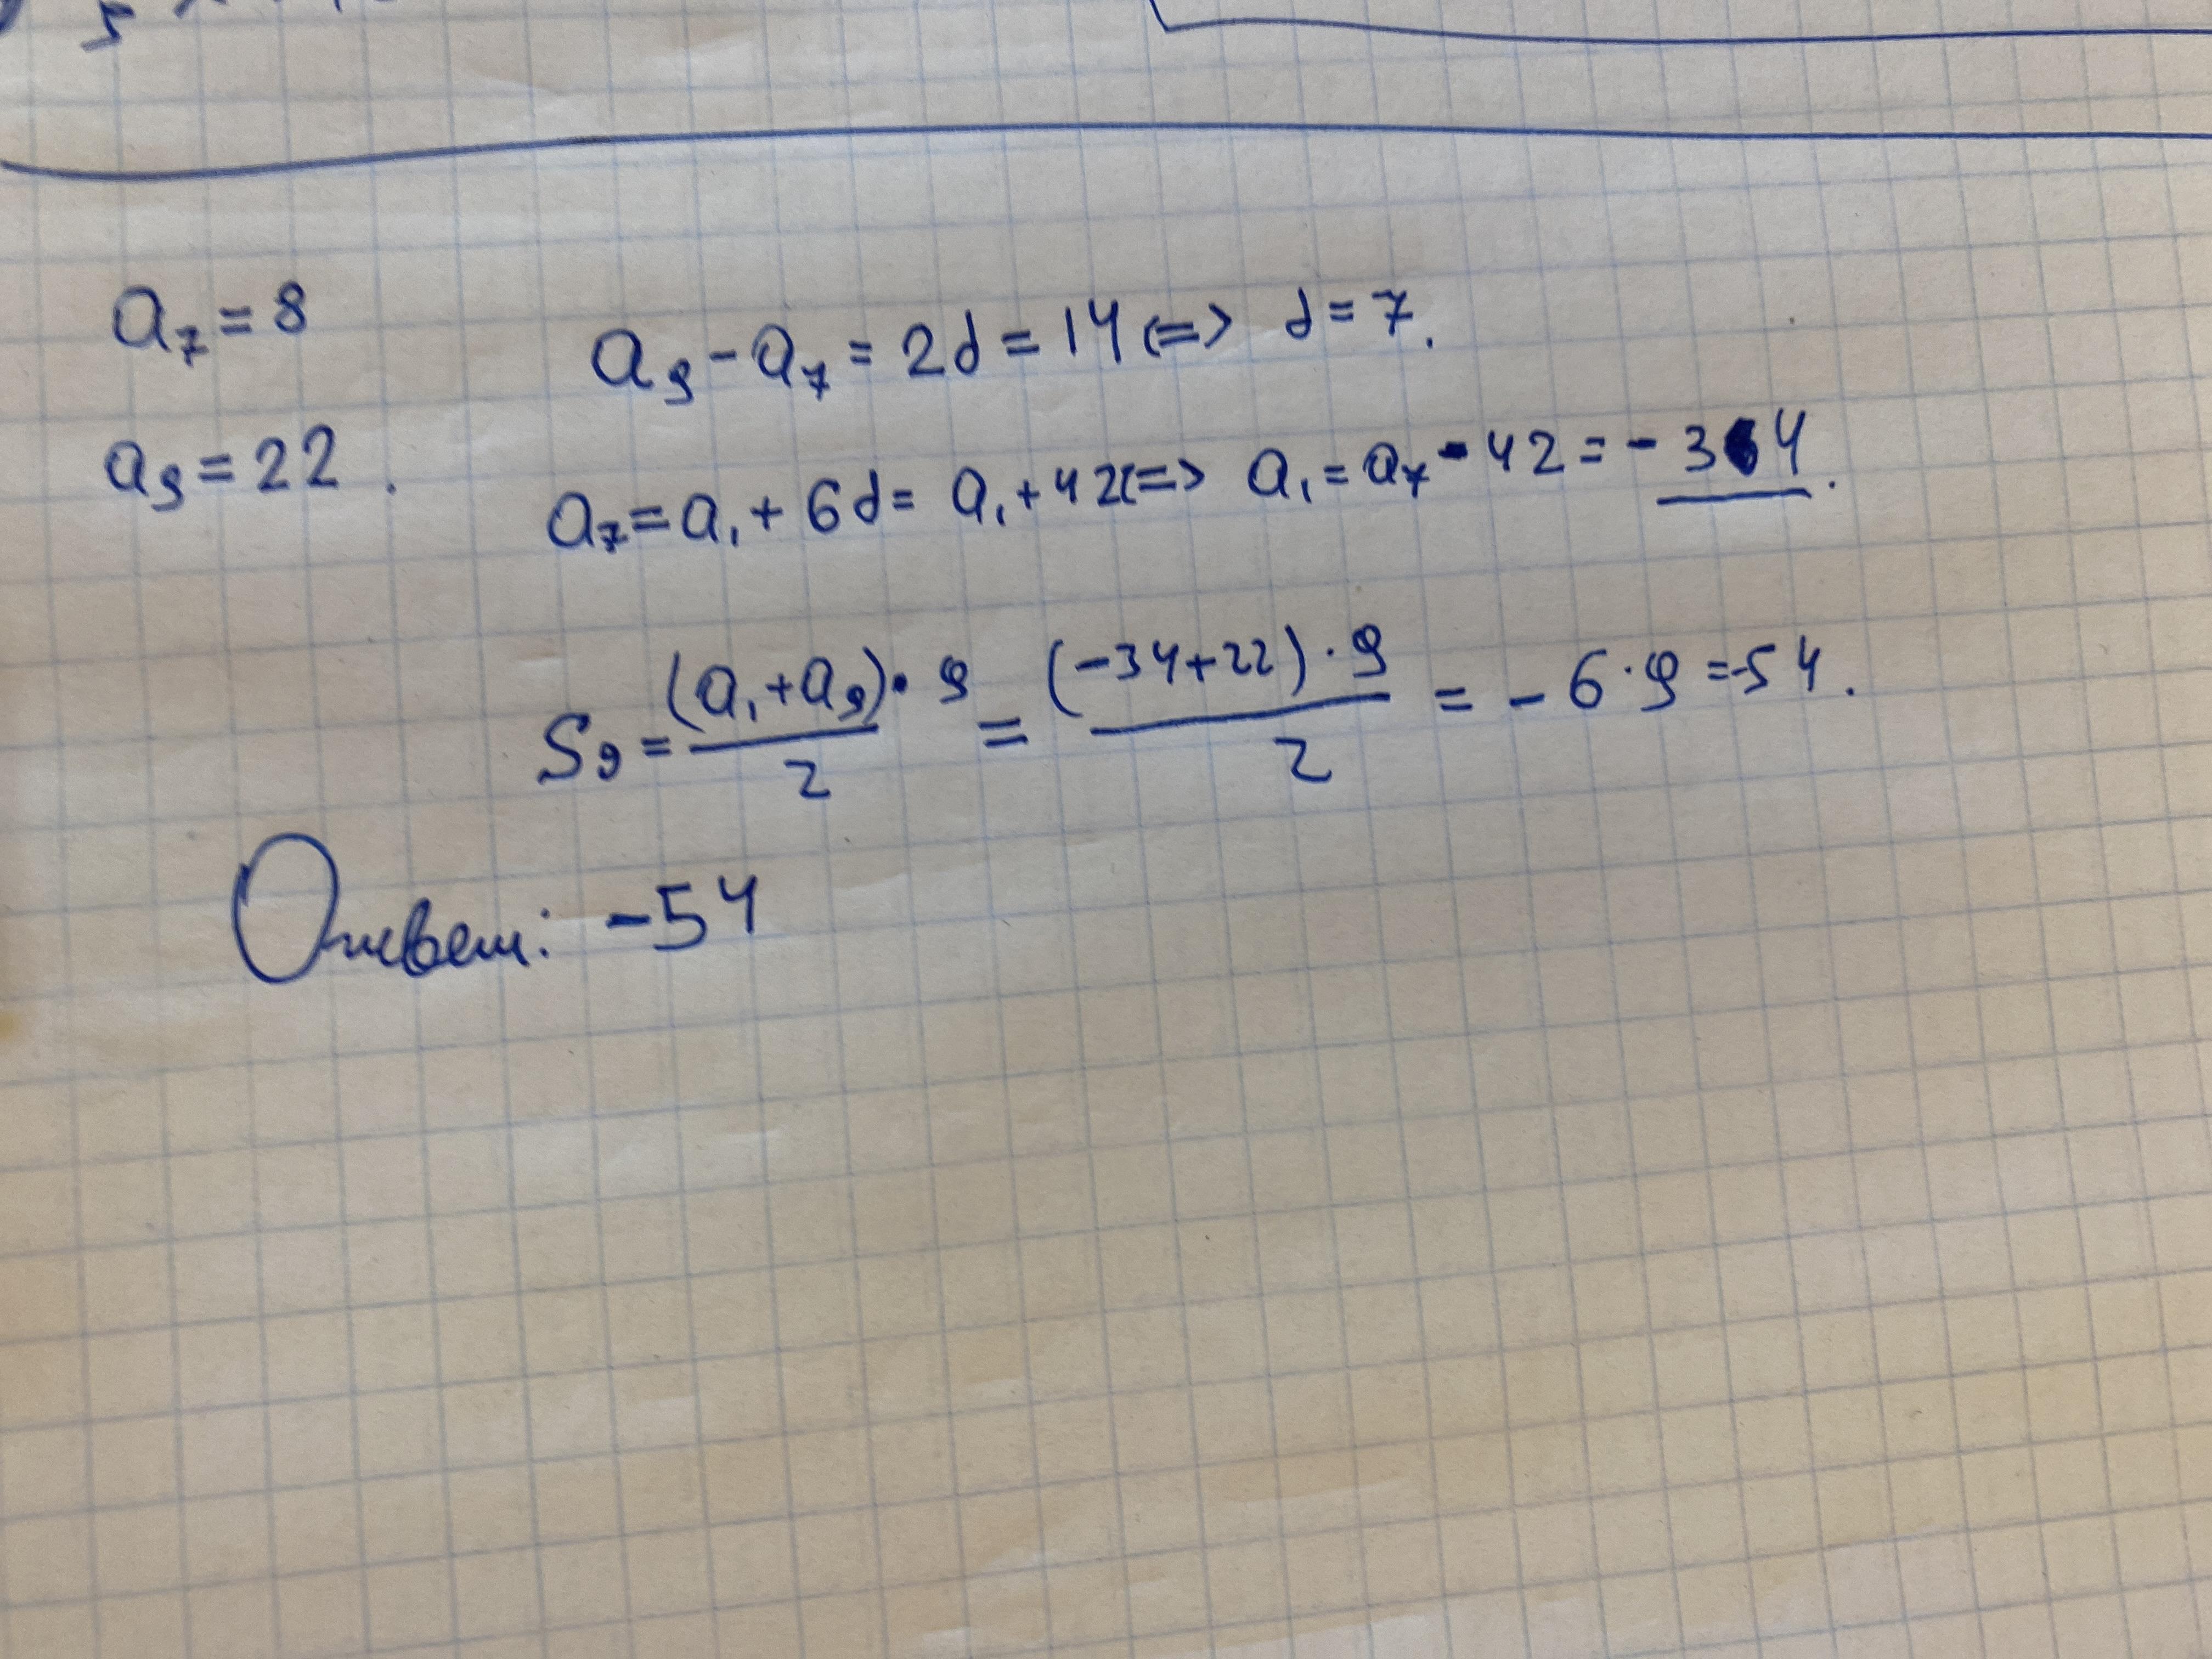 a₇ = 8
a₉ = 22 .
a₉ - a₇ = 2d = 14 <=> d = 7.
a₇ = a₁ + 6d = a₁ + 42 <=> a₁ = a₇ - 42 = - 34 .
S₉ = (a₁ + a₉) · 9 / 2 = (-34+22) · 9 / 2 = - 6 · 9 = -54.
Ответ: -54